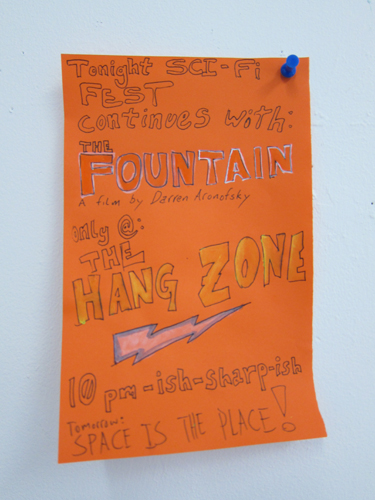 Tonight SCI-Fi
FEST
continues with:
THE
FOUNTAIN
A film by Darren Aronofsky
only @:
THE
HANG ZONE
10 pm-ish-sharp-ish
Tomorrow:
SPACE IS THE PLACE!